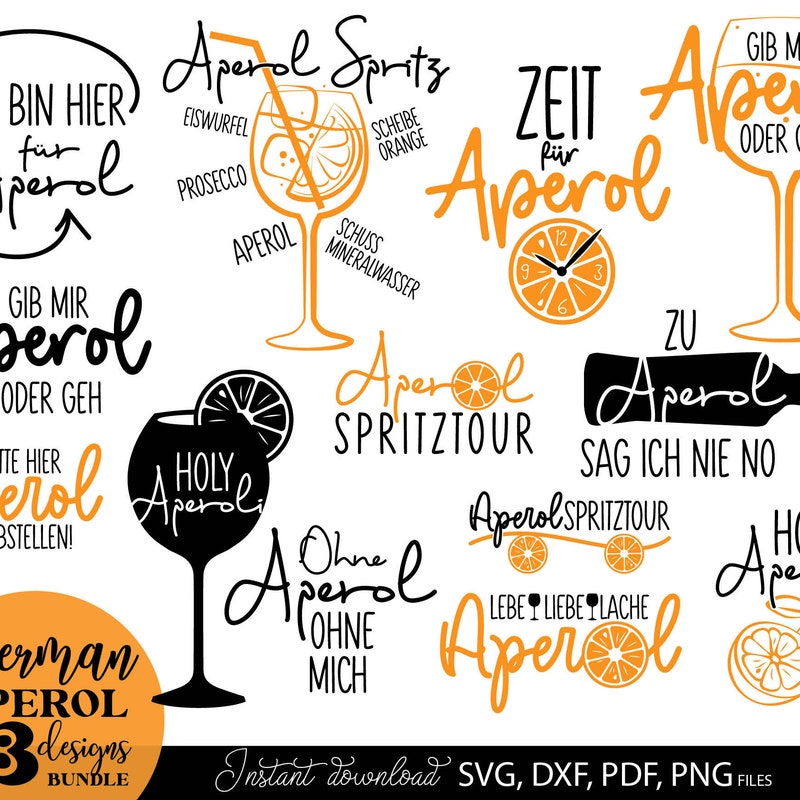 BIN HIER
für
Aperol
Aperol Spritz
EISWURFEL
SCHEIBE
ORANGE
PROSECCO
APEROL
SCHUSS
MINERALWASSER
ZEIT
für
Aperol
12
9
3
6
GIB MI
Aper
ODER G
GIB MIR
Aperol
ODER GEH
Aperol
SPRITZTOUR
ZU
Aperol
SAG ICH NIE NO
TTE HIER
Aperol
BSTELLEN!
HOLY
Aperoli
Ohne
Aperol
OHNE
MICH
Aperol SPRITZTOUR
LEBE LIEBE LACHE
Aperol
HO
Aper
German
APEROL
3 designs
BUNDLE
Instant download SVG, DXF, PDF, PNG FILES